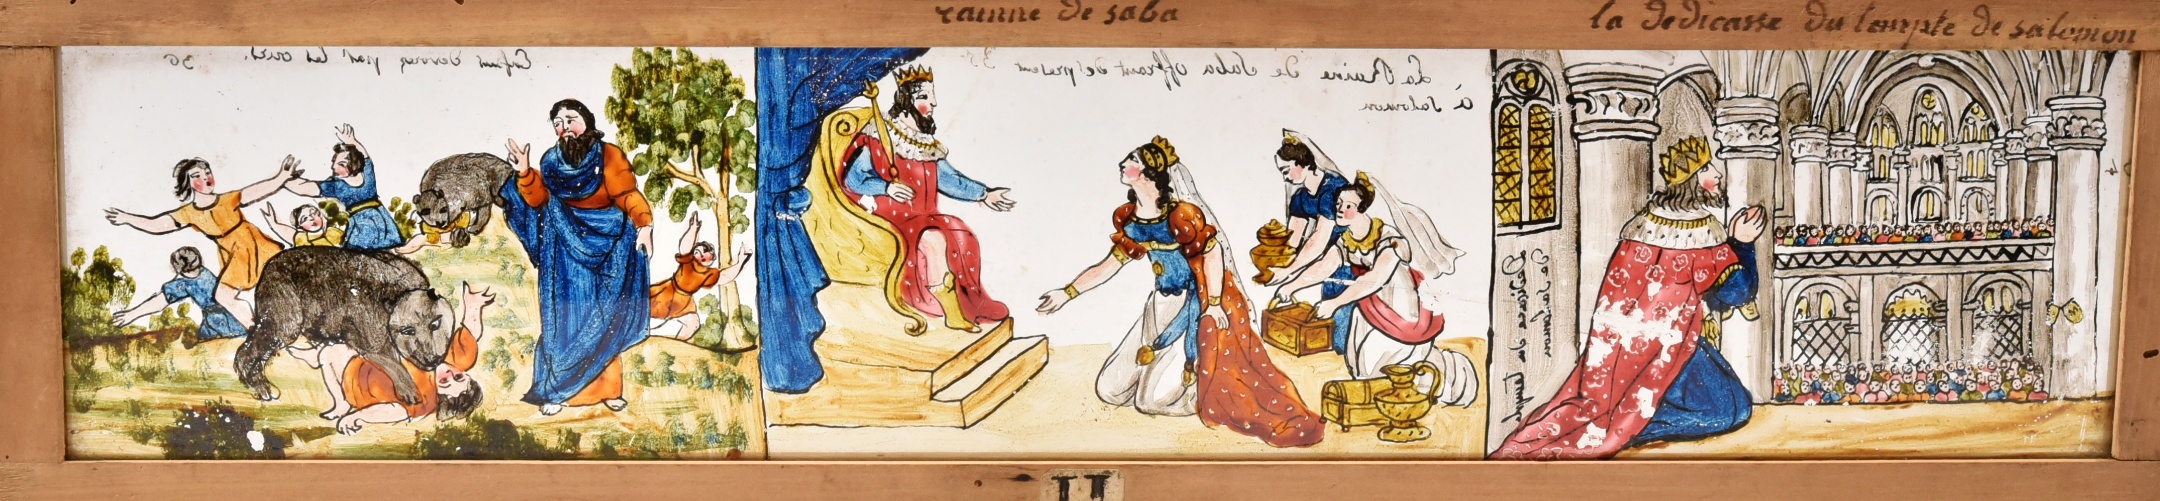 rainne de saba
la dedicasse du temple de salomon
Enfant devorez par les ours. 36
La Reine de Saba offrant de present 35
à Salomon
dedicace du Temple
de Salomon
II